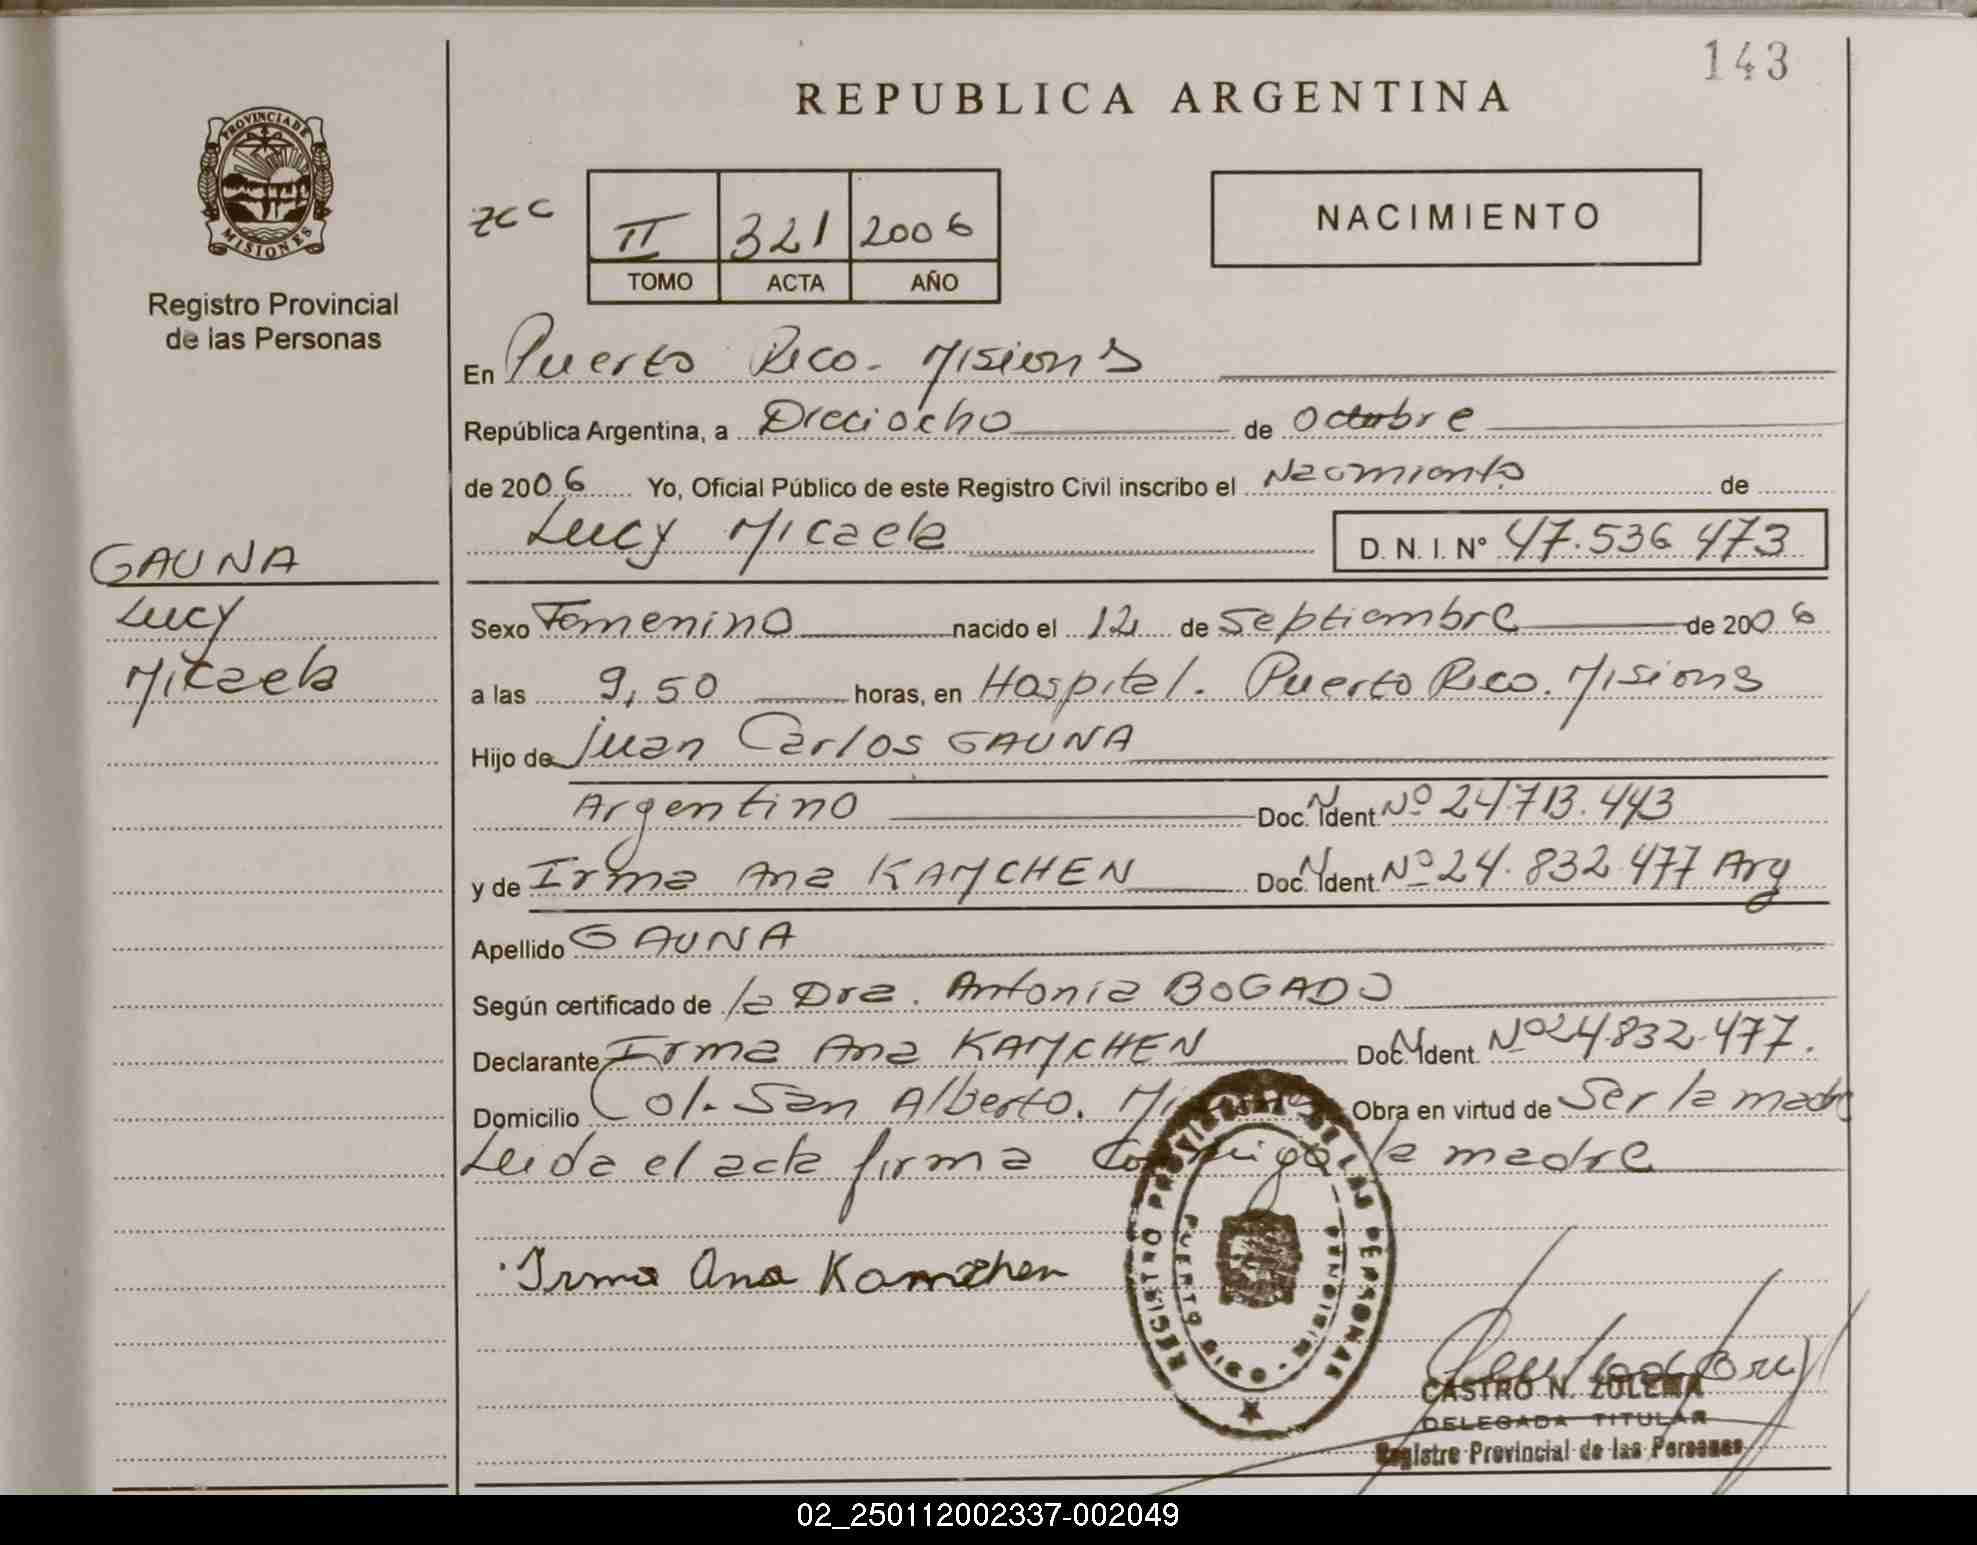 143
REPUBLICA ARGENTINA
PROVINCIA DE
MISIONES
Registro Provincial
de las Personas
zcc
II 321 2006
TOMO ACTA AÑO
NACIMIENTO
En Puerto Rico. Misiones
República Argentina, a Dieciocho de Octubre
de 2006 Yo, Oficial Público de este Registro Civil inscribo el Nacimiento de
Lucy Micaela D. N. I. N° 47.536.473
GAUNA
Lucy
Micaela
Sexo Femenino nacido el 12 de Septiembre de 2006
a las 9,50 horas, en Hospital. Puerto Rico. Misiones
Hijo de Juan Carlos GAUNA
Argentino Doc. N. Ident. Nº 24.713.443
y de Irma Ana KAMCHEN Doc. N. Ident. Nº 24.832.477 Arg
Apellido GAUNA
Según certificado de la Dra. Antonia BOGADO
Declarante Irma Ana KAMCHEN Doc. N. Ident. Nº 24.832.477.
Domicilio Col. San Alberto. Obra en virtud de Ser la madre
Leida el acta firma Conmigo la madre
Irma Ana Kamchen
REGISTRO PROVINCIAL DE LAS PERSONAS
PUERTO RICO
CASTRO N. ZULEMA
DELEGADA TITULAR
Registro Provincial de las Personas
02_250112002337-002049